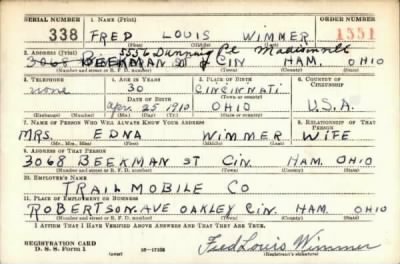 SERIAL NUMBER 1. NAME (Print) ORDER NUMBER
338 FRED LOUIS WIMMER 1551
(First) (Middle) (Last)
5556
2. ADDRESS (Print)
3068 BEEKMAN ST CIN HAM. OHIO
(Number and street or R. F. D. number) (Town) (County) (State)
3. TELEPHONE 4. AGE IN YEARS 5. PLACE OF BIRTH 6. COUNTRY OF CITIZENSHIP
none 30 CINCINNATI
(Town or county)
DATE OF BIRTH
Apr. 25 1910 OHIO U.S.A.
(Exchange) (Number) (Mo.) (Day) (Yr.) (State or country)
7. NAME OF PERSON WHO WILL ALWAYS KNOW YOUR ADDRESS 8. RELATIONSHIP OF THAT PERSON
MRS. EDNA WIMMER WIFE
(Mr., Mrs., Miss) (First) (Middle) (Last)
9. ADDRESS OF THAT PERSON
3068 BEEKMAN ST CIN. HAM. OHIO
(Number and street or R. F. D. number) (Town) (County) (State)
10. EMPLOYER'S NAME
TRAILMOBILE CO
11. PLACE OF EMPLOYMENT OR BUSINESS
ROBERTSON-AVE OAKLEY CIN. HAM. OHIO
(Number and street or R. F. D. number) (Town) (County) (State)
I AFFIRM THAT I HAVE VERIFIED ABOVE ANSWERS AND THAT THEY ARE TRUE.
REGISTRATION CARD
D. S. S. Form 1 (over) Fred Louis Wimmer
(Registrant's signature)